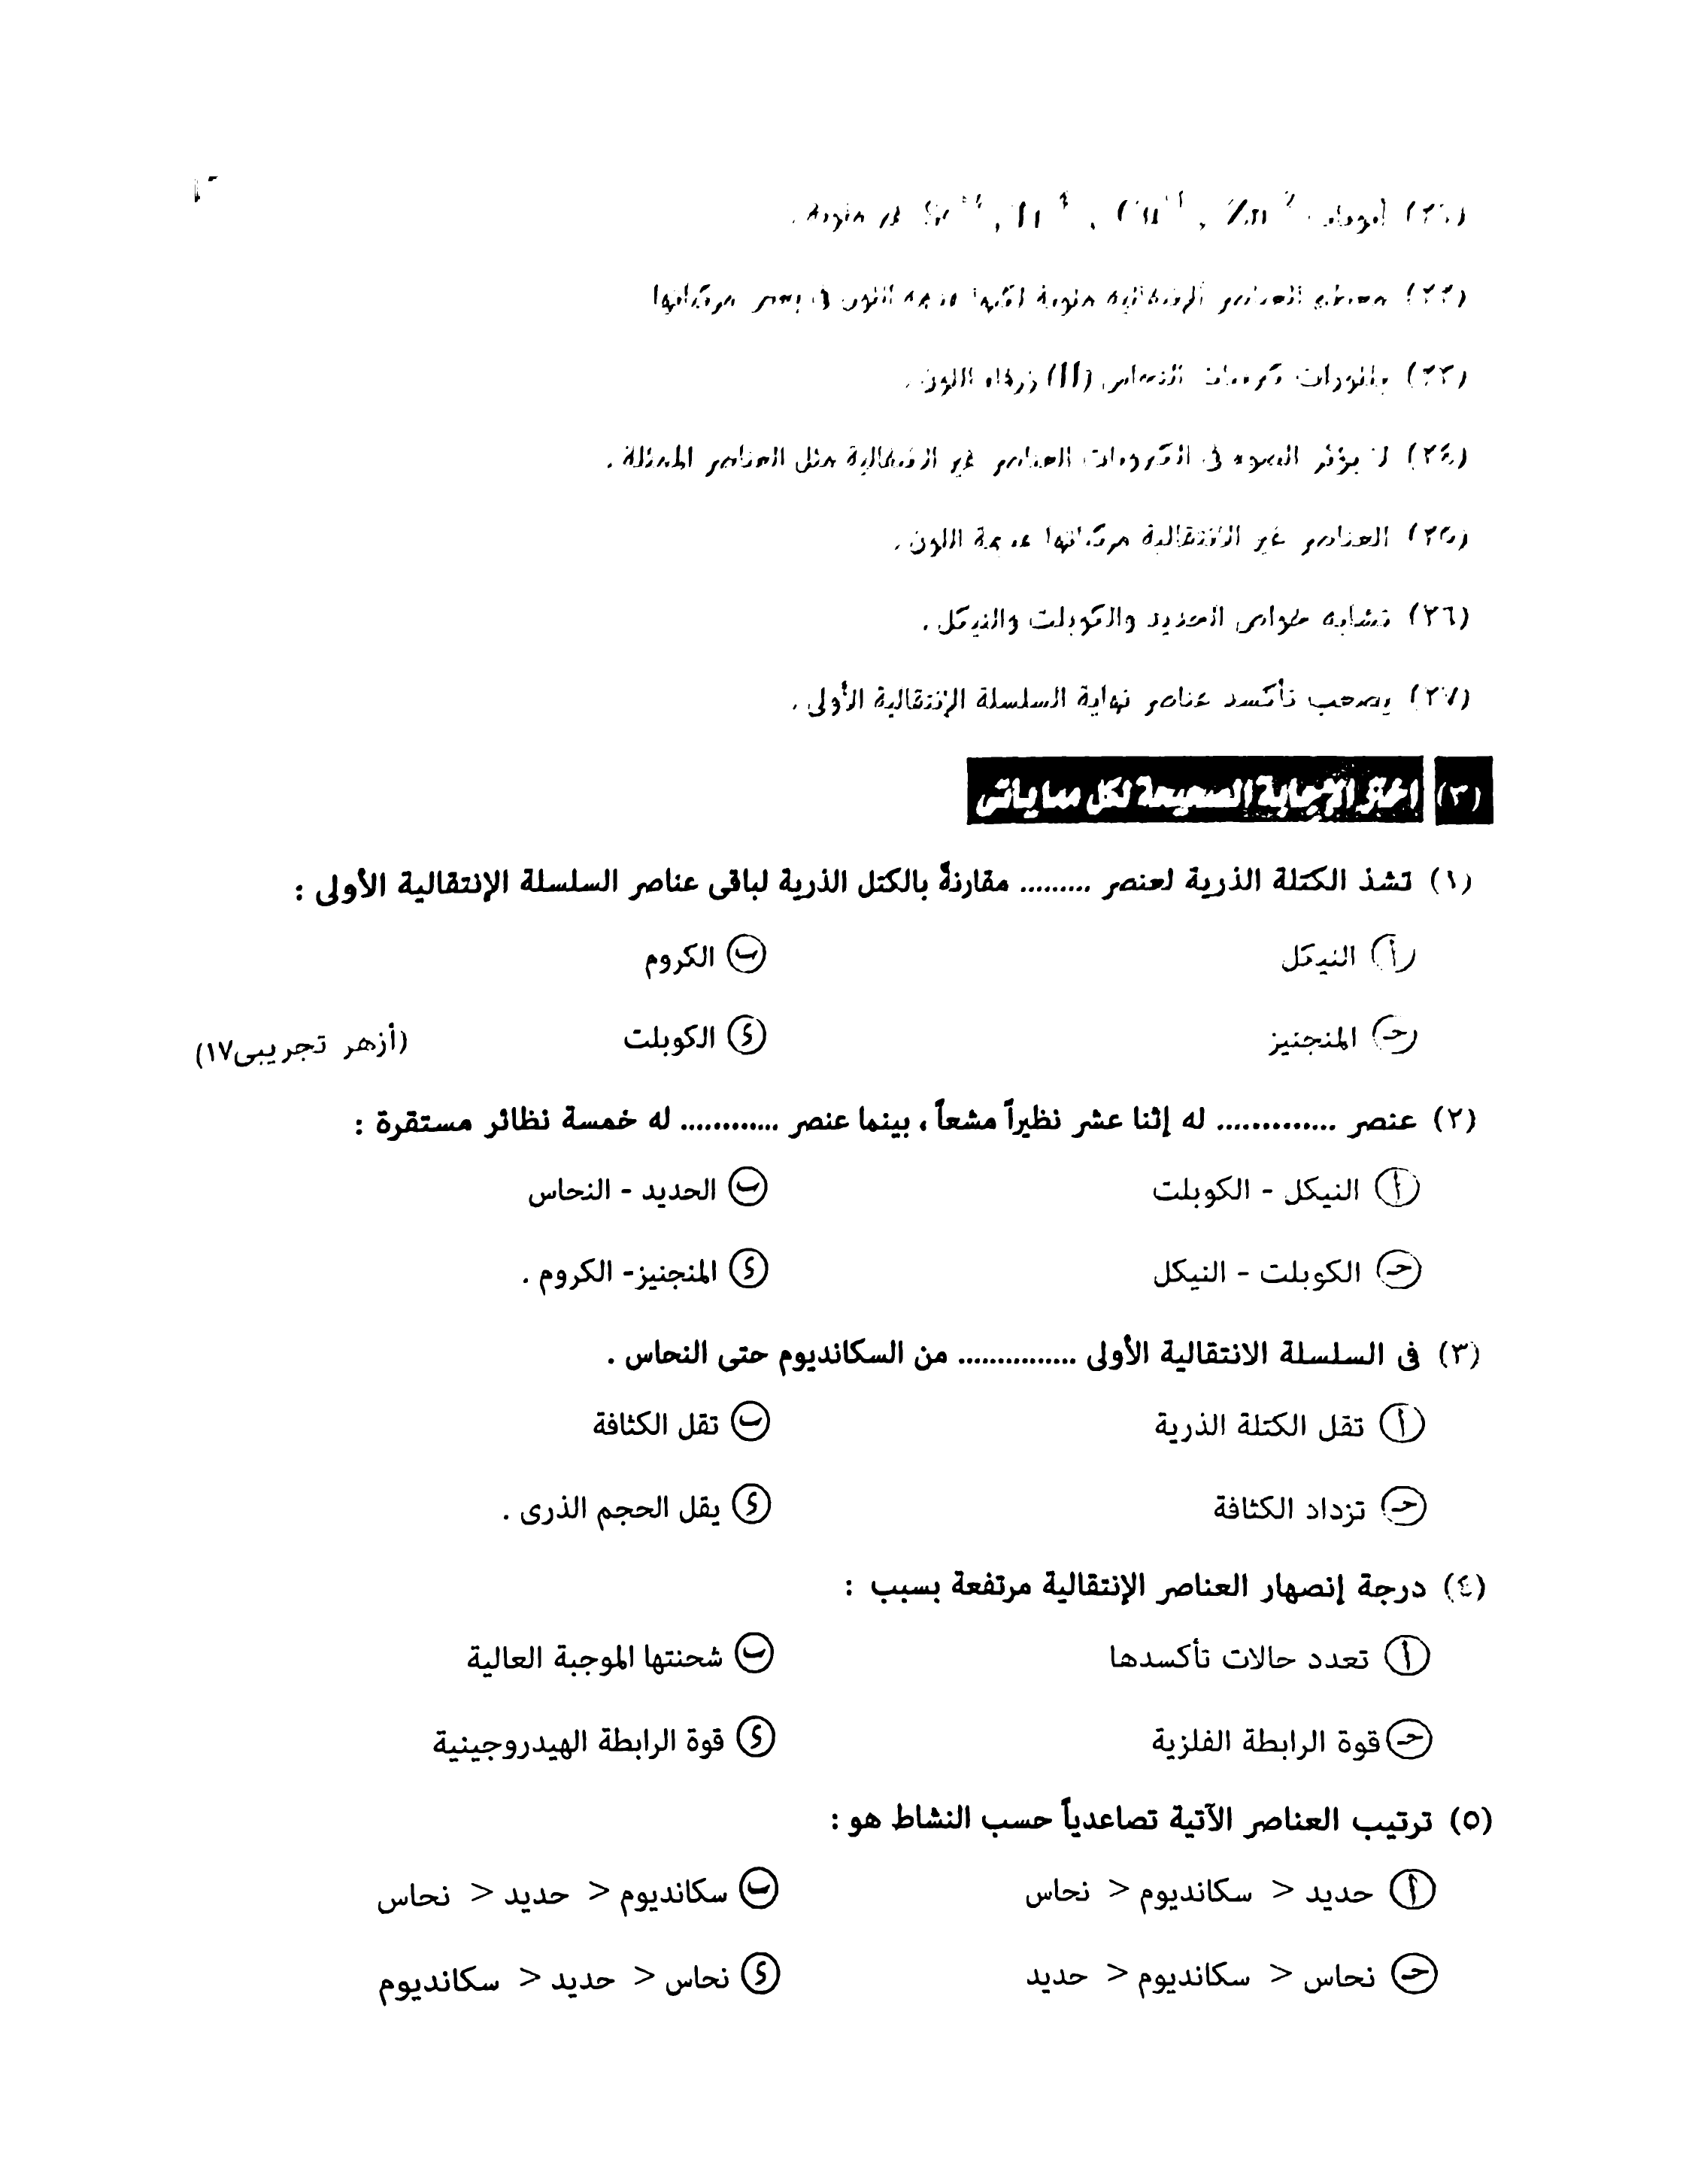 (٢١) أيونات Zn⁺² , Cu⁺¹ , Ti⁺⁴ , Sc⁺³ غير ملونة .
(٢٢) معظم العناصر الإنتقالية ملونة لكنها عديمة اللون فى بعض مركباتها
(٢٣) بللورات كبريتات النحاس (II) زرقاء اللون .
(٢٤) لا يؤثر الضوء فى الكترونات العناصر غير الانتقالية مثل العناصر الممثلة .
(٢٥) العناصر غير الانتقالية مركباتها عديمة اللون .
(٢٦) تشابه خواص الحديد والكوبلت والنيكل .
(٢٧) يصعب تأكسد عناصر نهاية السلسلة الإنتقالية الأولى .
(٣) اختر الإجابة الصحيحة لكل مما يأتى
(١) تشذ الكتلة الذرية لعنصر ......... مقارنةً بالكتل الذرية لباقى عناصر السلسلة الإنتقالية الأولى :
أ النيكل ب الكروم
جـ المنجنيز د الكوبلت (أزهر تجريبى١٧)
(٢) عنصر .............. له إثنا عشر نظيراً مشعاً ، بينما عنصر ............ له خمسة نظائر مستقرة :
أ النيكل - الكوبلت ب الحديد - النحاس
جـ الكوبلت - النيكل د المنجنيز- الكروم .
(٣) فى السلسلة الانتقالية الأولى ............... من السكانديوم حتى النحاس .
أ تقل الكتلة الذرية ب تقل الكثافة
جـ تزداد الكثافة د يقل الحجم الذرى .
(٤) درجة إنصهار العناصر الإنتقالية مرتفعة بسبب :
أ تعدد حالات تأكسدها ب شحنتها الموجبة العالية
جـ قوة الرابطة الفلزية د قوة الرابطة الهيدروجينية
(٥) ترتيب العناصر الآتية تصاعدياً حسب النشاط هو :
أ حديد > سكانديوم > نحاس ب سكانديوم > حديد > نحاس
جـ نحاس > سكانديوم > حديد د نحاس > حديد > سكانديوم